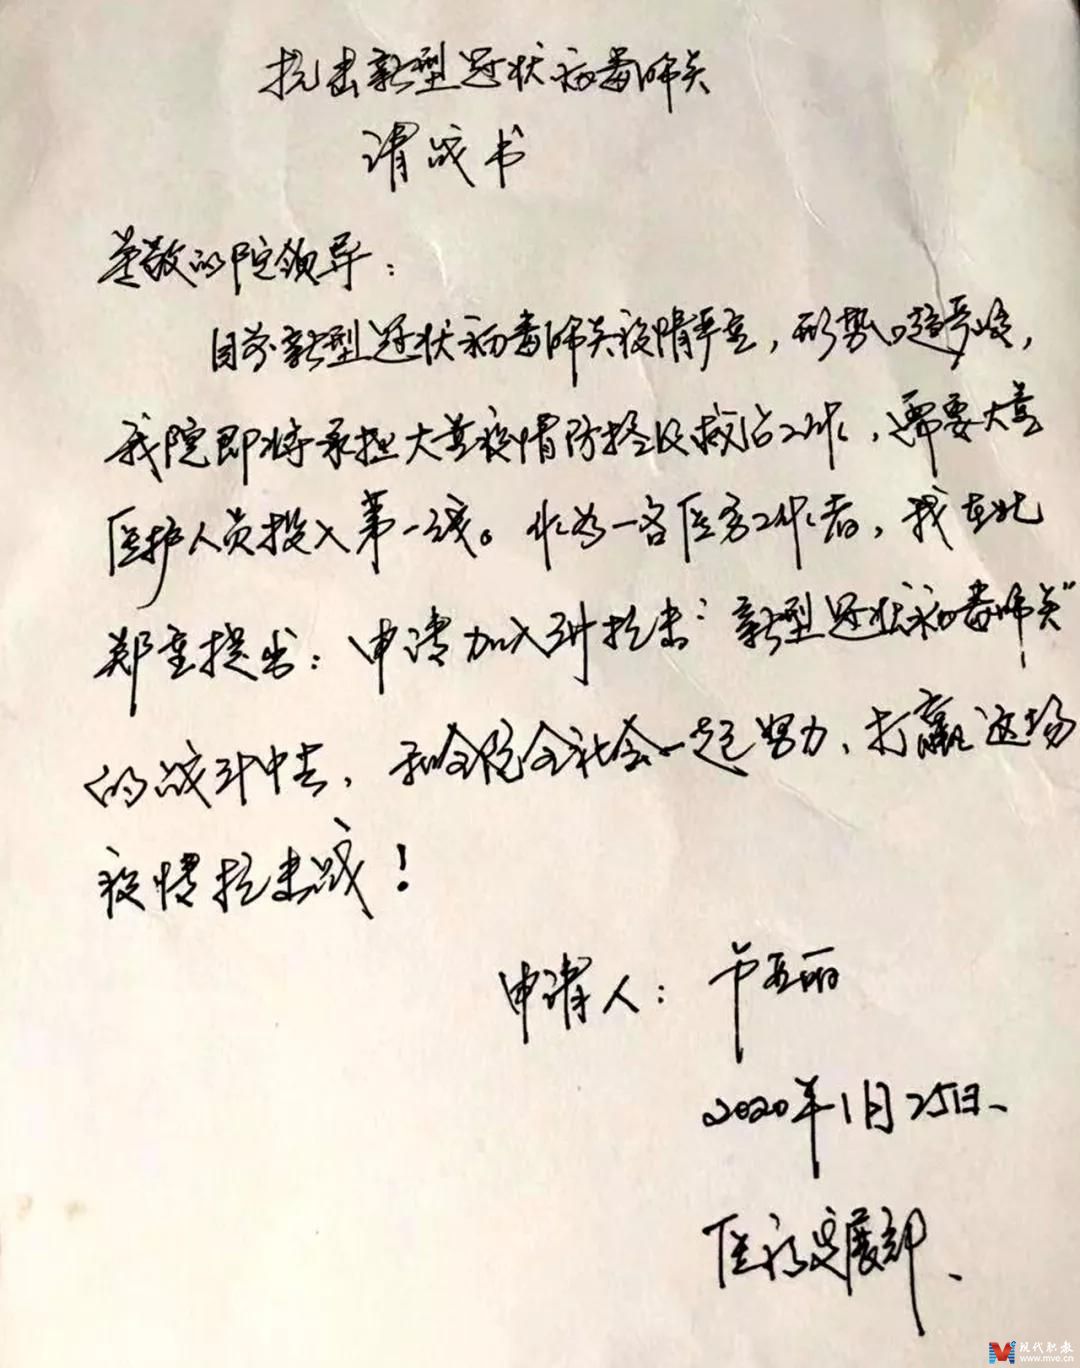 抗击新型冠状病毒肺炎
请战书
尊敬的院领导：
目前新型冠状病毒肺炎疫情严重，形势日趋严峻，
我院即将承担大量疫情防控及救治工作，需要大量
医护人员投入第一线。作为一名医务工作者，我在此
郑重提出：申请加入到抗击“新型冠状病毒肺炎”
的战斗中去，和全院全社会一起努力、打赢这场
疫情抗击战！
申请人：卢亚丽
2020年1月25日、
医疗发展部、
现代职教
www.mve.cn